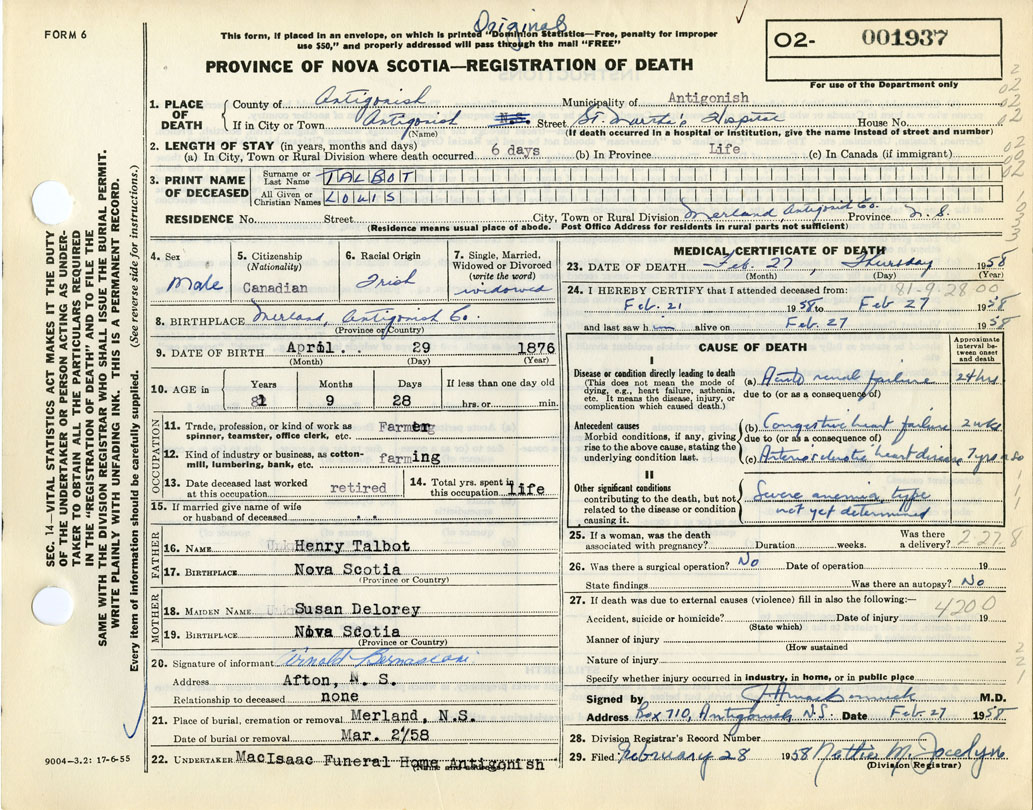 Original
FORM 6
This form, if placed in an envelope, on which is printed "Dominion Statistics—Free, penalty for improper
use $50," and properly addressed will pass through the mail "FREE"
02- 001937
For use of the Department only
PROVINCE OF NOVA SCOTIA—REGISTRATION OF DEATH
1. PLACE OF DEATH County of Antigonish Municipality of Antigonish
If in City or Town Antigonish N.S. Street St. Martha's Hospital House No.
(Name) (If death occurred in a hospital or institution, give the name instead of street and number)
2. LENGTH OF STAY (in years, months and days)
(a) In City, Town or Rural Division where death occurred 6 days (b) In Province Life (c) In Canada (if immigrant)
3. PRINT NAME OF DECEASED Surname or Last Name TALBOT
All Given or Christian Names LOUIS
RESIDENCE No. Street City, Town or Rural Division Merland, Antigonish Co. Province N.S.
(Residence means usual place of abode. Post Office Address for residents in rural parts not sufficient)
4. Sex Male
5. Citizenship (Nationality) Canadian
6. Racial Origin Irish
7. Single, Married, Widowed or Divorced (write the word) widowed
8. BIRTHPLACE Merland, Antigonish Co.
(Province or Country)
9. DATE OF BIRTH April 29 1876
(Month) (Day) (Year)
10. AGE in Years 81 Months 9 Days 28 If less than one day old hrs. or min.
OCCUPATION
11. Trade, profession, or kind of work as spinner, teamster, office clerk, etc. Farmer
12. Kind of industry or business, as cotton-mill, lumbering, bank, etc. farming
13. Date deceased last worked at this occupation retired
14. Total yrs. spent in this occupation life
15. If married give name of wife or husband of deceased
FATHER
16. NAME Henry Talbot
17. BIRTHPLACE Nova Scotia
(Province or Country)
MOTHER
18. MAIDEN NAME Susan Delorey
19. BIRTHPLACE Nova Scotia
(Province or Country)
20. Signature of informant Arnold Bernasconi
Address Afton, N. S.
Relationship to deceased none
21. Place of burial, cremation or removal Merland, N.S.
Date of burial or removal Mar. 2/58
22. UNDERTAKER MacIsaac Funeral Home Antigonish
(Name and address)
MEDICAL CERTIFICATE OF DEATH
23. DATE OF DEATH Feb. 27, Thursday 1958
(Month) (Day) (Year)
81-9-28 00
24. I HEREBY CERTIFY that I attended deceased from:
Feb. 21 1958 to Feb 27 1958
and last saw him alive on Feb 27 1958
CAUSE OF DEATH
Approximate interval between onset and death
I
Disease or condition directly leading to death
(This does not mean the mode of dying, e.g., heart failure, asthenia, etc. It means the disease, injury, or complication which caused death.)
(a) Acute renal failure 24 hrs
due to (or as a consequence of)
Antecedent causes
Morbid conditions, if any, giving rise to the above cause, stating the underlying condition last.
(b) Congestive heart failure 2 wks
due to (or as a consequence of)
(c) Arteriosclerotic heart disease 7 yrs
II
Other significant conditions
contributing to the death, but not related to the disease or condition causing it.
Severe anemia, type
not yet determined
25. If a woman, was the death associated with pregnancy? Duration weeks. Was there a delivery?
2 27 8
26. Was there a surgical operation? No Date of operation 19
State findings Was there an autopsy? No
27. If death was due to external causes (violence) fill in also the following:—
4200
Accident, suicide or homicide? Date of injury 19
(State which)
Manner of injury
(How sustained
Nature of injury
Specify whether injury occurred in industry, in home, or in public place
Signed by M.D.
Address Box 710, Antigonish, N.S. Date Feb. 27 1958
28. Division Registrar's Record Number
29. Filed February 28 1958 Nettie M. Jocelyn
(Division Registrar)
SEC. 14—VITAL STATISTICS ACT MAKES IT THE DUTY
OF THE UNDERTAKER OR PERSON ACTING AS UNDER-
TAKER TO OBTAIN ALL THE PARTICULARS REQUIRED
IN THE "REGISTRATION OF DEATH" AND TO FILE THE
SAME WITH THE DIVISION REGISTRAR WHO SHALL ISSUE THE BURIAL PERMIT.
WRITE PLAINLY WITH UNFADING INK. THIS IS A PERMANENT RECORD.
Every item of information should be carefully supplied. (See reverse side for instructions.)
9004-3.2: 17-6-55